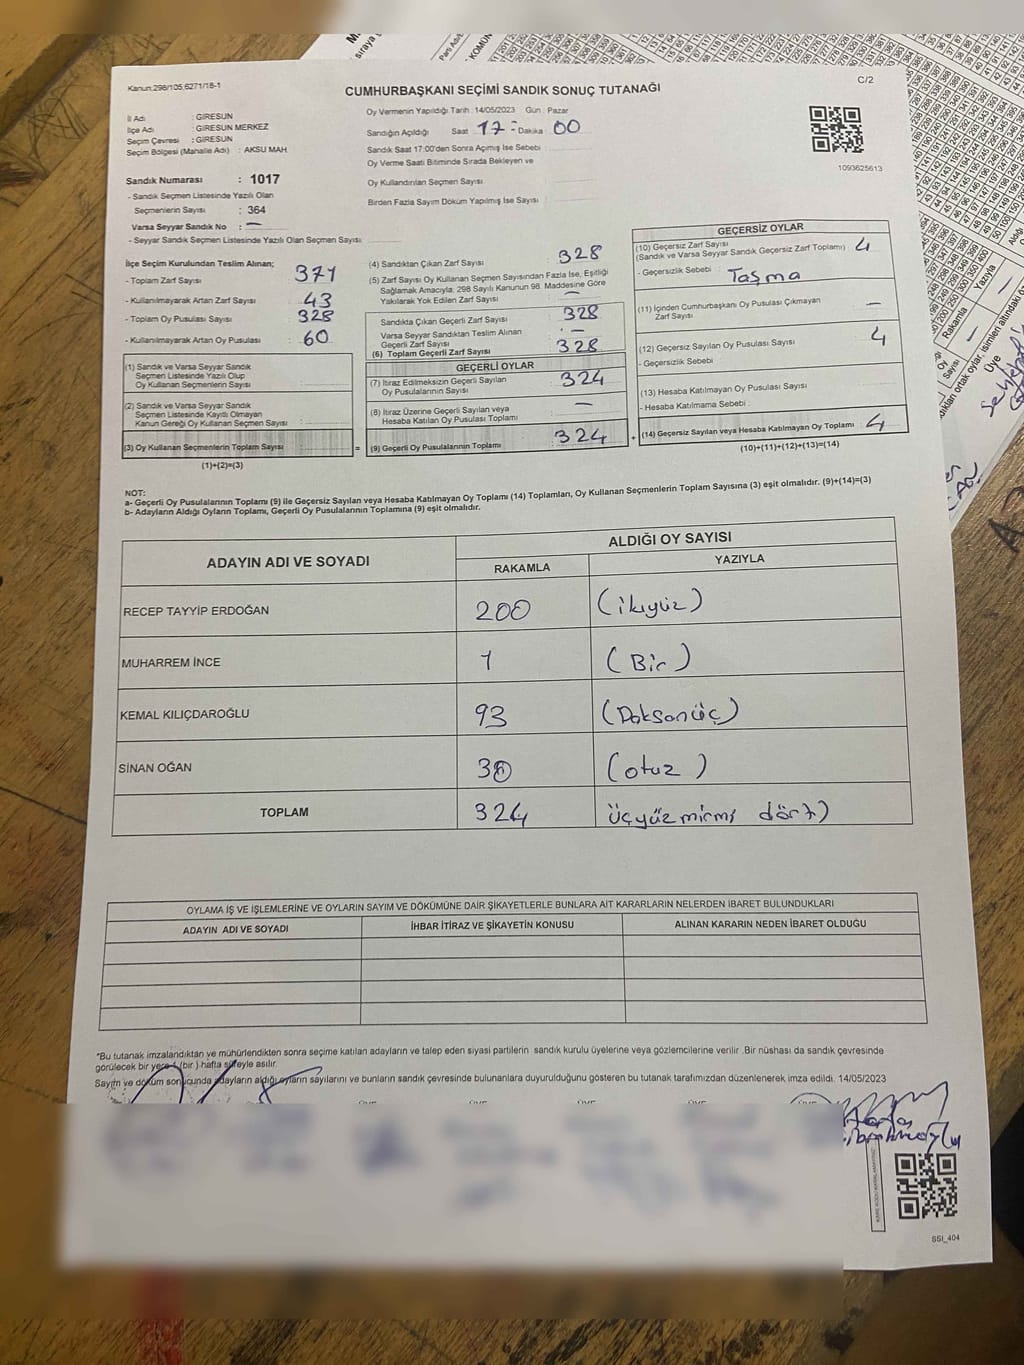 Kanun:298/105,6271/18-1
CUMHURBAŞKANI SEÇİMİ SANDIK SONUÇ TUTANAĞI
C/2
İl Adı : GİRESUN
İlçe Adı : GİRESUN MERKEZ
Seçim Çevresi : GİRESUN
Seçim Bölgesi (Mahalle Adı) : AKSU MAH.
Sandık Numarası : 1017
- Sandık Seçmen Listesinde Yazılı Olan
Seçmenlerin Sayısı : 364
Varsa Seyyar Sandık No : —
- Seyyar Sandık Seçmen Listesinde Yazılı Olan Seçmen Sayısı
Oy Vermenin Yapıldığı Tarih : 14/05/2023 Gün : Pazar
Sandığın Açıldığı Saat 17 - Dakika 00
Sandık Saat 17:00'den Sonra Açımış İse Sebebi :
Oy Verme Saati Bitiminde Sırada Bekleyen ve
Oy Kullandırılan Seçmen Sayısı :
Birden Fazla Sayım Döküm Yapılmış İse Sayısı :
1093625613
İlçe Seçim Kurulundan Teslim Alınan;
- Toplam Zarf Sayısı : 371
- Kullanılmayarak Artan Zarf Sayısı : 43
- Toplam Oy Pusulası Sayısı : 328
- Kullanılmayarak Artan Oy Pusulası : 60
(1) Sandık ve Varsa Seyyar Sandık
Seçmen Listesinde Yazılı Olup
Oy Kullanan Seçmenlerin Sayısı :
(2) Sandık ve Varsa Seyyar Sandık
Seçmen Listesinde Kayıtlı Olmayan
Kanun Gereği Oy Kullanan Seçmen Sayısı :
(3) Oy Kullanan Seçmenlerin Toplam Sayısı :
(1)+(2)=(3)
(4) Sandıktan Çıkan Zarf Sayısı : 328
(5) Zarf Sayısı Oy Kullanan Seçmen Sayısından Fazla İse, Eşitliği
Sağlamak Amacıyla, 298 Sayılı Kanunun 98. Maddesine Göre
Yakılarak Yok Edilen Zarf Sayısı : —
Sandıkta Çıkan Geçerli Zarf Sayısı : 328
Varsa Seyyar Sandıktan Teslim Alınan
Geçerli Zarf Sayısı : —
(6) Toplam Geçerli Zarf Sayısı : 328
GEÇERLİ OYLAR
(7) İtiraz Edilmeksizin Geçerli Sayılan
Oy Pusulalarının Sayısı : 324
(8) İtiraz Üzerine Geçerli Sayılan veya
Hesaba Katılan Oy Pusulası Toplamı : —
= (9) Geçerli Oy Pusulalarının Toplamı : 324 +
GEÇERSİZ OYLAR
(10) Geçersiz Zarf Sayısı
(Sandık ve Varsa Seyyar Sandık Geçersiz Zarf Toplamı) : 4
- Geçersizlik Sebebi : Taşma
(11) İçinden Cumhurbaşkanı Oy Pusulası Çıkmayan
Zarf Sayısı : —
(12) Geçersiz Sayılan Oy Pusulası Sayısı : 4
- Geçersizlik Sebebi :
(13) Hesaba Katılmayan Oy Pusulası Sayısı :
- Hesaba Katılmama Sebebi :
(14) Geçersiz Sayılan veya Hesaba Katılmayan Oy Toplamı : 4
(10)+(11)+(12)+(13)=(14)
NOT:
a- Geçerli Oy Pusulalarının Toplamı (9) ile Geçersiz Sayılan veya Hesaba Katılmayan Oy Toplamı (14) Toplamları, Oy Kullanan Seçmenlerin Toplam Sayısına (3) eşit olmalıdır. (9)+(14)=(3)
b- Adayların Aldığı Oyların Toplamı, Geçerli Oy Pusulalarının Toplamına (9) eşit olmalıdır.
ADAYIN ADI VE SOYADI
ALDIĞI OY SAYISI
RAKAMLA
YAZIYLA
RECEP TAYYİP ERDOĞAN 200 (ikiyüz)
MUHARREM İNCE 1 (Bir)
KEMAL KILIÇDAROĞLU 93 (Doksanüç)
SİNAN OĞAN 30 (otuz)
TOPLAM 324 üçyüzmirmi dört)
OYLAMA İŞ VE İŞLEMLERİNE VE OYLARIN SAYIM VE DÖKÜMÜNE DAİR ŞİKAYETLERLE BUNLARA AİT KARARLARIN NELERDEN İBARET BULUNDUKLARI
ADAYIN ADI VE SOYADI
İHBAR İTİRAZ VE ŞİKAYETİN KONUSU
ALINAN KARARIN NEDEN İBARET OLDUĞU
*Bu tutanak imzalandıktan ve mühürlendikten sonra seçime katılan adayların ve talep eden siyasi partilerin sandık kurulu üyelerine veya gözlemcilerine verilir .Bir nüshası da sandık çevresinde
görülecek bir yere 1 (bir ) hafta süreyle asılır.
Sayım ve döküm sonucunda adayların aldığı oyların sayılarını ve bunların sandık çevresinde bulunanlara duyurulduğunu gösteren bu tutanak tarafımızdan düzenlenerek imza edildi. 14/05/2023
SSI_404